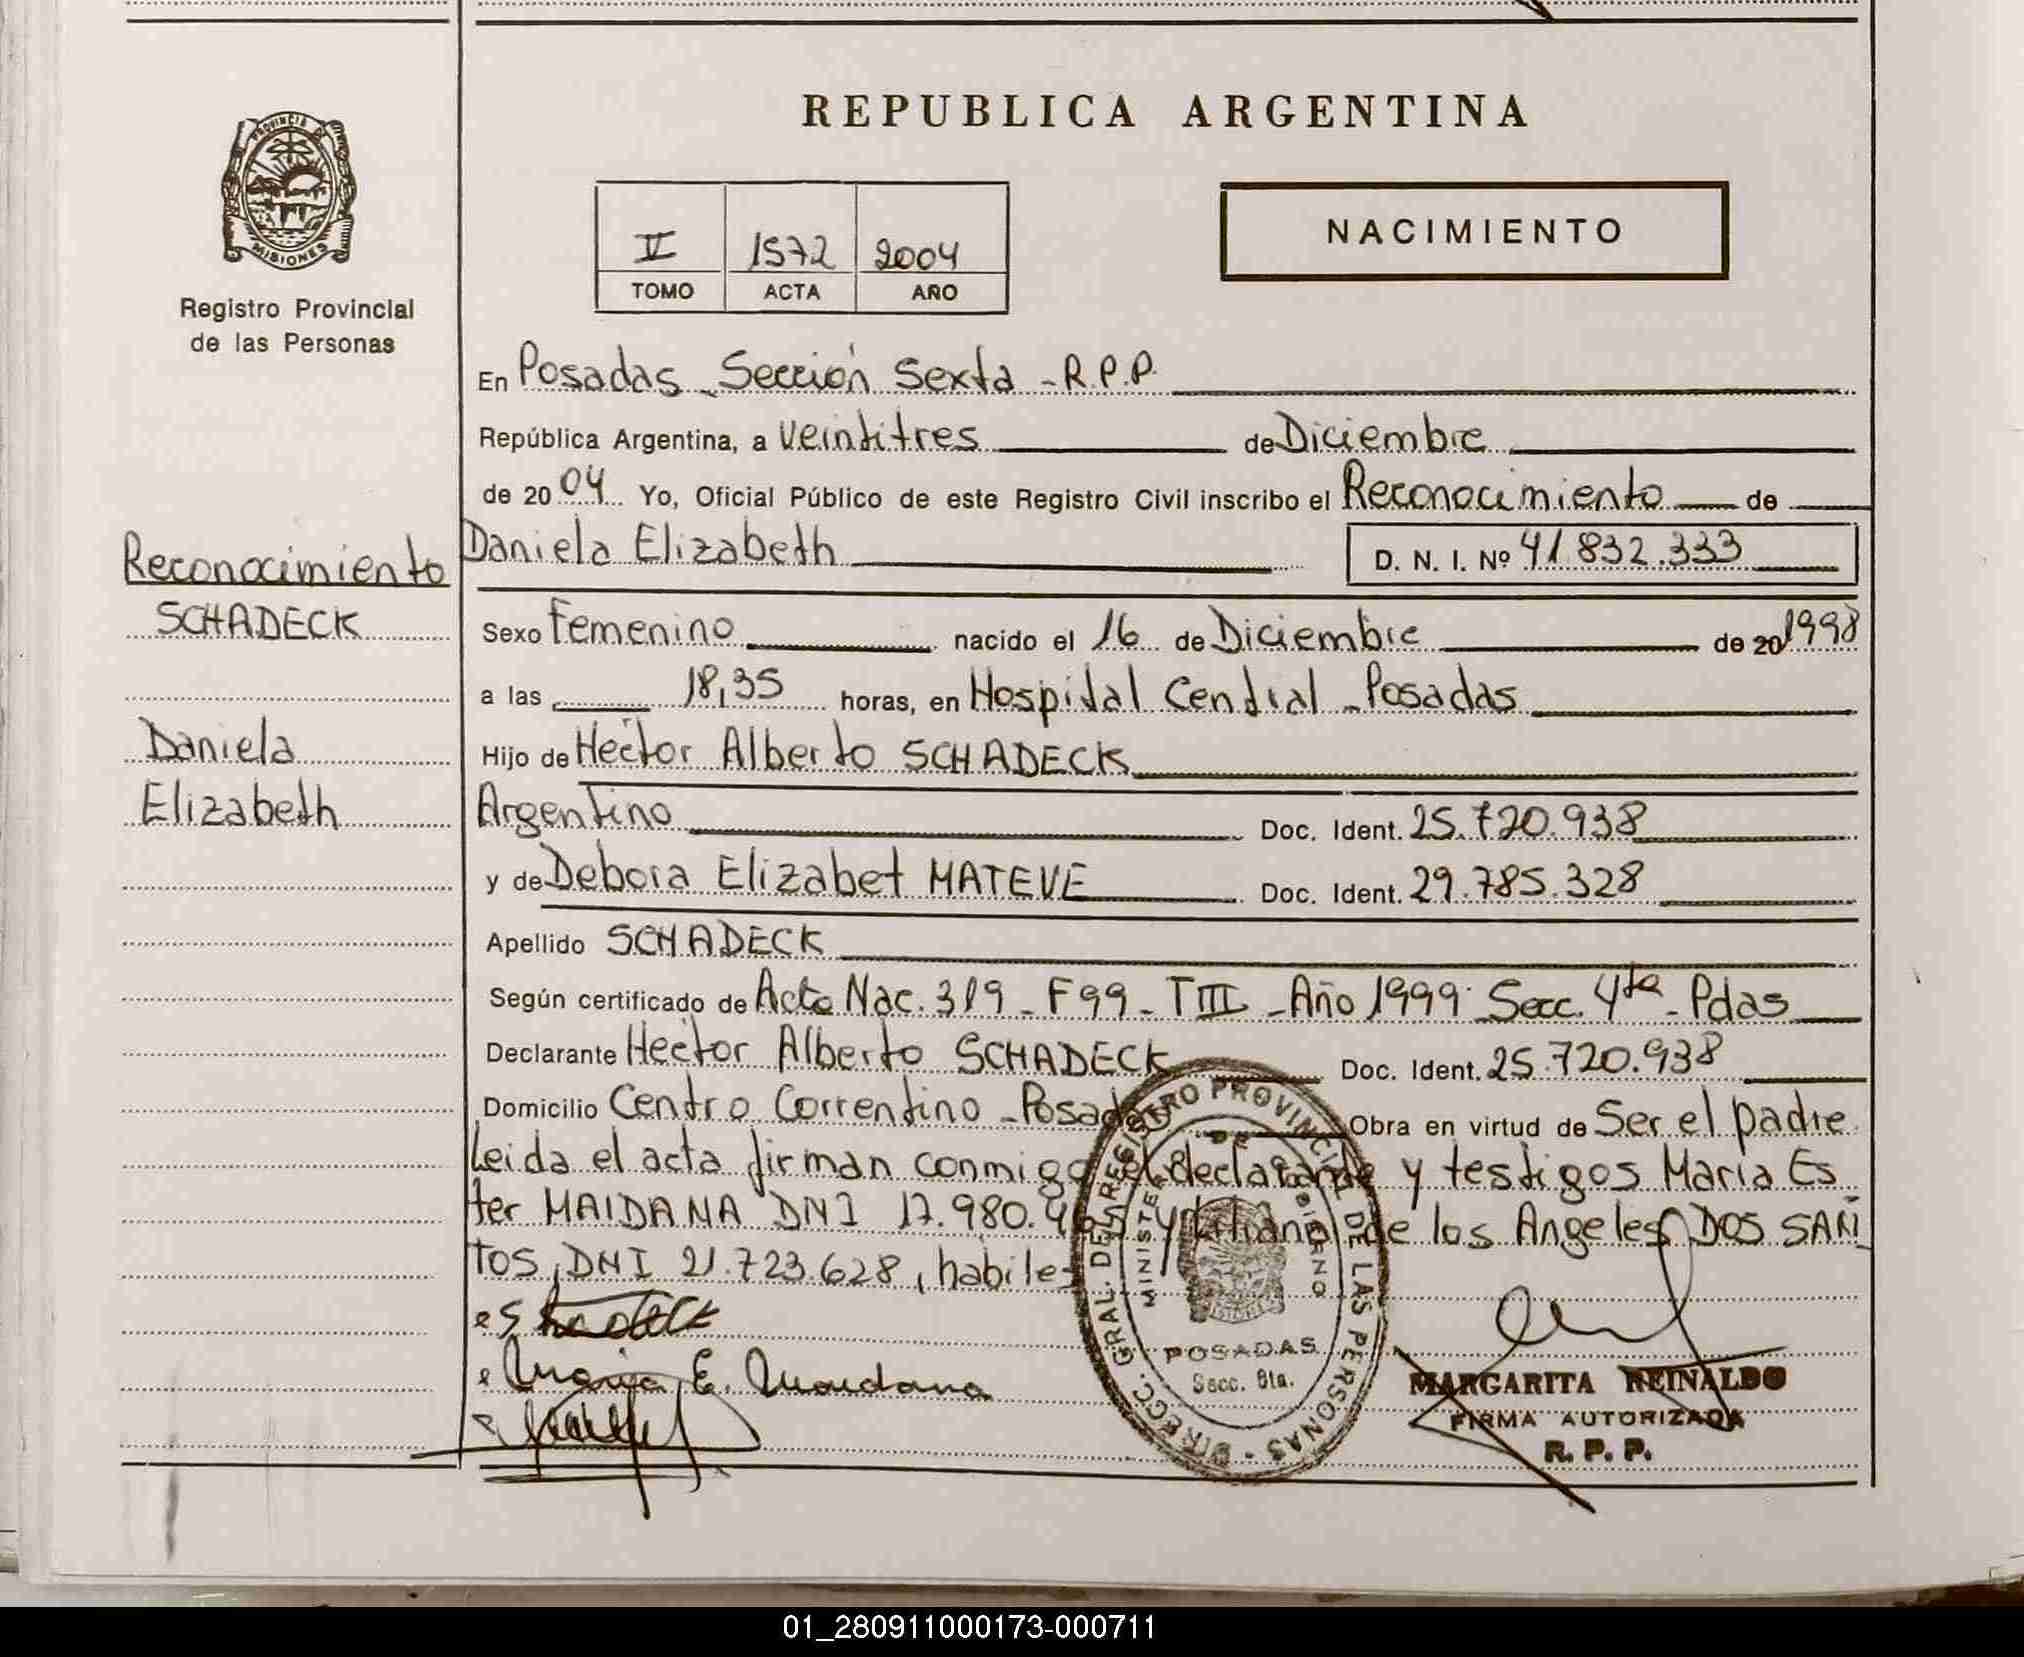 REPUBLICA ARGENTINA
PROVINCIA DE
MISIONES
Registro Provincial
de las Personas
V 1572 2004
TOMO ACTA AÑO
NACIMIENTO
En Posadas - Sección Sexta - R.P.P.
República Argentina, a Veintitres de Diciembre
de 20 04 Yo, Oficial Público de este Registro Civil inscribo el Reconocimiento de
Daniela Elizabeth D. N. I. Nº 41.832.333
Sexo Femenino nacido el 16 de Diciembre de 20 1998
a las 18,35 horas, en Hospital Central - Posadas
Hijo de Hector Alberto SCHADECK
Argentino Doc. Ident. 25.720.938
y de Debora Elizabet MATEVE Doc. Ident. 29.785.328
Apellido SCHADECK
Según certificado de Acta Nac. 319 - F 99 - T III - Año 1999 Secc. 4ta - Pdas
Declarante Hector Alberto SCHADECK Doc. Ident. 25.720.938
Domicilio Centro Correntino - Posadas Obra en virtud de Ser el padre
Leida el acta firman conmigo el declarante y testigos Maria Es
ter MAIDANA DNI 17.980. y Liliana de los Angeles DOS SAN
TOS, DNI 21.723.628, habiles
Maria E. Maidana
Reconocimiento
SCHADECK
Daniela
Elizabeth
DIRECC. GRAL. DEL REGISTRO PROVINCIAL DE LAS PERSONAS
MINISTERIO DE GOBIERNO
POSADAS
Secc. 6ta.
MARGARITA REINALDO
FIRMA AUTORIZADA
R. P. P.
01_280911000173-000711